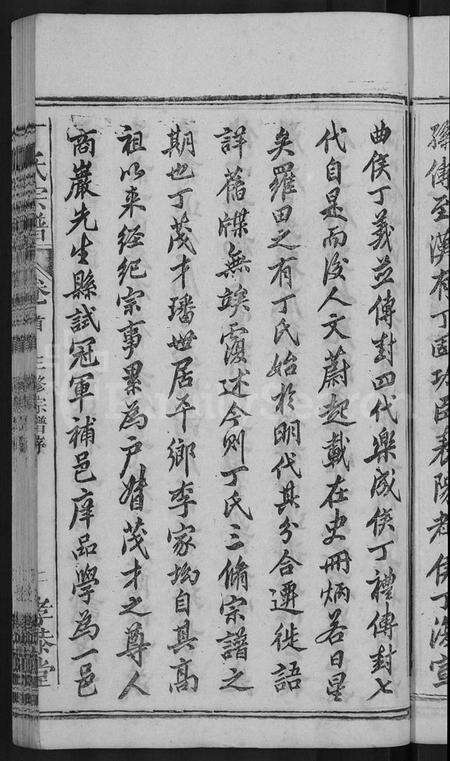 孫傳至漢有丁固功臣表陽老侯丁復宣
曲侯丁義並傳封四代樂成侯丁禮傳封七
代自是而後人文蔚起載在史冊炳若日星
矣羅田之有丁氏始於明代其分合遷徙語
詳舊牒無竢覆述今則丁氏三脩宗譜之
期也丁茂才璠世居平鄉李家坳自其高
祖以來經紀宗事累為户督茂才之尊人
商巖先生縣試冠軍補邑庠品學為一邑
氏宗譜
卷首
三修宗譜序